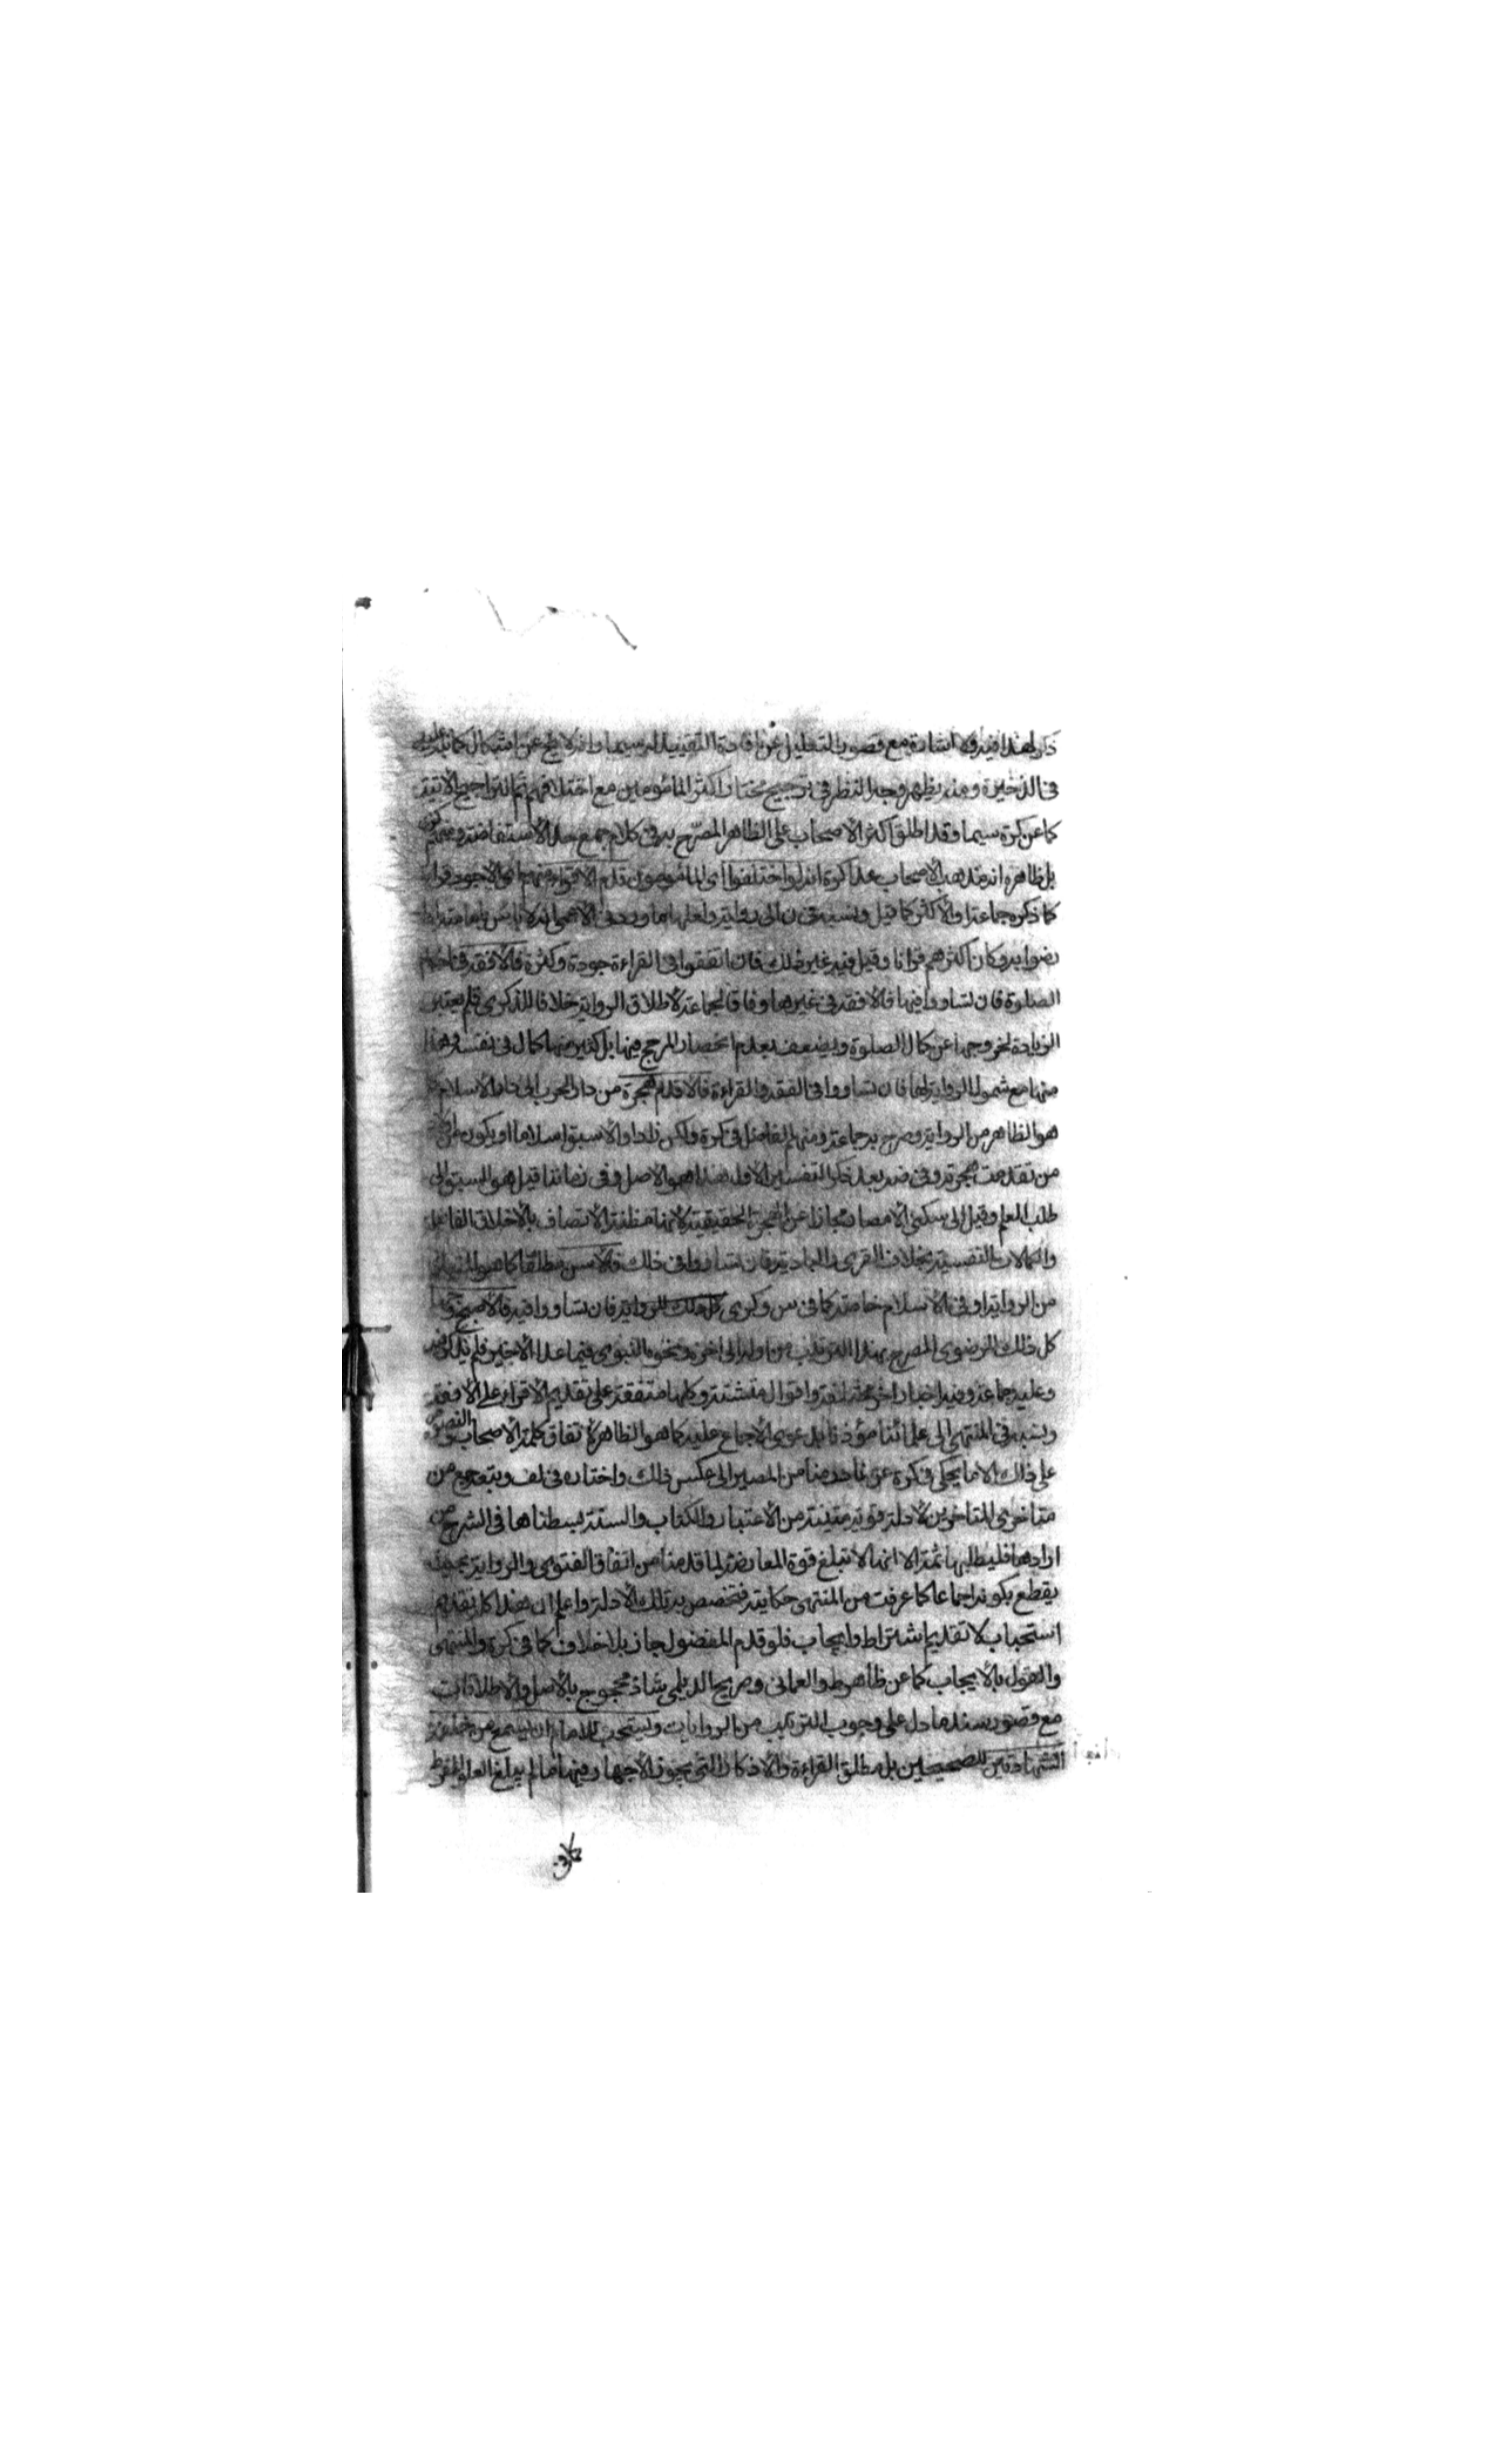 ذكر لهذا فيه ولا اشارة مع قصور التعليل عن افادة التقييد له سيما وانه لا يخ عن اشكال كما نبه عليه
فى الذخيرة ومنه يظهر وجه النظر فى ترجيح مختار اكثر المأمومين مع اختلافهم ثم التراجيح الاتية
كما عن كرة سيما وقد اطلق اكثر الاصحاب على الظاهر المصرح به فى كلام جمع حد الاستفاضة ومنهم كرة
بل ظاهره انه مذهب الاصحاب عدا كرة انه لو اختلفوا اى المأمومون قدم الاقرأ منهم اى الاجود قراءة
كما ذكره جماعة او الاكثر كما قيل ونسبه فى ن الى رواية ولعلها ما ورد فى الاعمى انه لا بأس بامامته اذا
رضوا به وكان اكثرهم قرانا وقيل فيه غير ذلك فان اتفقوا فى القراءة جودة وكثرة فالافقه فى احكام
الصلوة فان تساووا فيها فالافقه فى غيرها وفاقا لجماعة لاطلاق الرواية خلافا للذكرى فلم يعتبر
الزيادة لخروجها عن كمال الصلوة ويضعف بعدم انحصار المرجح فيها بل كثير منها كمال فى نفسه وهذا
منها مع شمول الرواية لها فان تساووا فى الفقه والقراءة فالاقدم هجرة من دار الحرب الى دار الاسلام
هو الظاهر من الرواية وصرح به جماعة ومنهم الفاضل فى كرة ولكن زاد او الاسبق اسلاما او يكون من اولاد
من تقدمت هجرته وفى ضه بعد ذكر التفسير الاول هذا هو الاصل وفى زماننا قيل هو السبق الى
طلب العلم وقيل الى سكنى الامصار مجازا عن الهجرة الحقيقية لانها مظنة الاتصاف بالاخلاق الفاضلة
والكمالات النفسية بخلاف القرى والبادية فان تساووا فى ذلك فالاسن مطلقا كما هو المتبادر
من الرواية او فى الاسلام خاصة كما فى س وكرى كل ذلك للرواية فان تساووا فيه فالاصبح وجها
كل ذلك الرضوى المصرح بهذا الترتيب من اوله الى اخره ونحوه النبوى فيما عدا الاخير فلم يذكر فيه
وعليه جماعة وفيه اخبار اخر مختلفة واقوال متشتتة وكلها متفقة على تقديم الاقرأ على الافقه
ونسبه فى المنتهى الى علمائنا مؤذنا بدعوى الاجماع عليه كما هو الظاهر لاتفاق كلمة الاصحاب والنصوص
على ذلك الا ما يحكى فى كرة عن واحد منا من المصير الى عكس ذلك واختاره فى لف وتبعه جمع من
متاخرى المتاخرين لادلة قوية متينة من الاعتبار والكتاب والسنة بسطناها فى الشرح من
ارادها فليطلبها ثمة الا انها لا تبلغ قوة المعارضة لما قدمنا من اتفاق الفتوى والرواية بحيث
يقطع بكونه اجماعا كما عرفت من المنتهى حكايته فتخصص به تلك الادلة واعلم ان هذا كله تقديم
استحباب لا تقديم اشتراط وايجاب فلو قدم المفضول جاز بلا خلاف كما فى كرة والمنتهى
والقول بالايجاب كما عن ظاهر ط والعمانى وصريح الديلمى شاذ محجوج بالاصل والاطلاقات
مع قصور سند ما دل على وجوب الترتيب من الروايات ويستحب للامام ان يسمع من خلفه
الشهادتين للصحيحين بل مطلق القراءة والاذكار التى يجوز الاجهار فيها ما لم يبلغ العلو المفرط